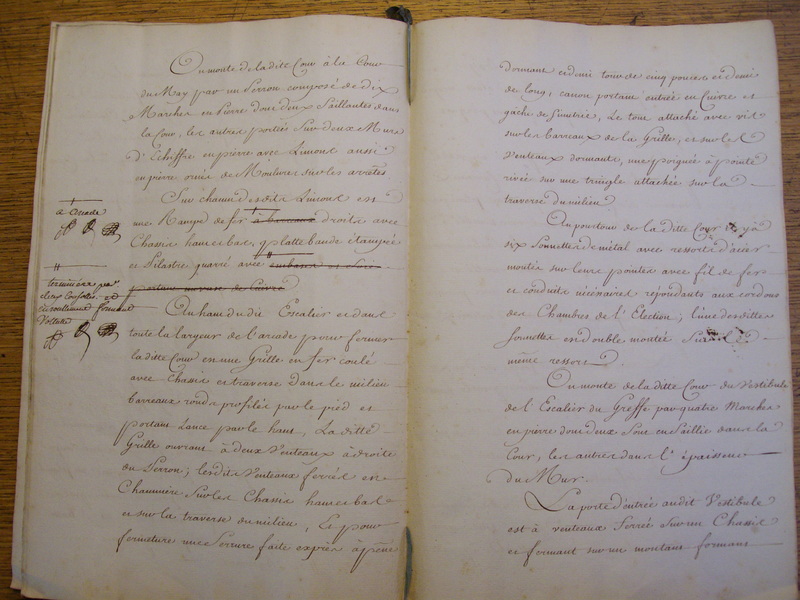 On monte de la ditte Cour à la Cour
du May par un Perron composé de dix
Marches en Pierre dont deux Saillantes dans
la Cour, les autres portées Sur deux Murs
d'Echiffre en pierre avec Limons aussi
en pierre ornés de Moulures sur les arrêttes
Sur chacun desdits Limons est
une Rampe de fer à barreaux droits avec
Chassis haut et bas, plattebande étampée
et Pilastre quarré avec embasse
portant
à Arcade
terminées par
deux consolles et
enroullement formant
Volutte
Au haut dudit Escalier et dans
toute la largeur de l'arcade pour fermer
la ditte Cour est une Grille en fer coulé
avec Chassis et traverse dans le milieu
barreaux ronds profilés par le pied et
portant Lance par le haut, La ditte
Grille ouvrant à deux Venteaux à droite
du Perron; lesdits Venteaux ferrés en
Charniere Sur les Chassis haut et bas
et sur la traverse du milieu, Et pour
fermeture une Serrure faite exprès à pêne
dormant et demi tour de cinq pouces et demi
de long, canon portant entrée en Cuivre et
gâche de Simetrie, Le tout attaché avec vis
sur les barreaux de la Grille, et sur les
Venteaux dormants, une poignée à pointe
rivée sur une tringle attachée sur la
traverse du milieu.
Au pourtour de la ditte Cour il y a
six Sonnettes de métal avec ressorts d'acier
montés sur leurs pointes avec fil de fer
et conduits nécéssaires répondants aux cordons
des Chambres de l'Election; l'une desdittes
Sonnettes est double montée Sur le
même ressort
On monte de la ditte Cour au Vestibule
de l'Escalier du Greffe par quatre Marches
en pierre dont deux Sont en Saillie dans la
Cour, les autres dans l'épaisseur
du Mur.
La porte d'entrée audit Vestibule
est à venteaux Ferrée Sur un Chassis
et formant sur un montant formant